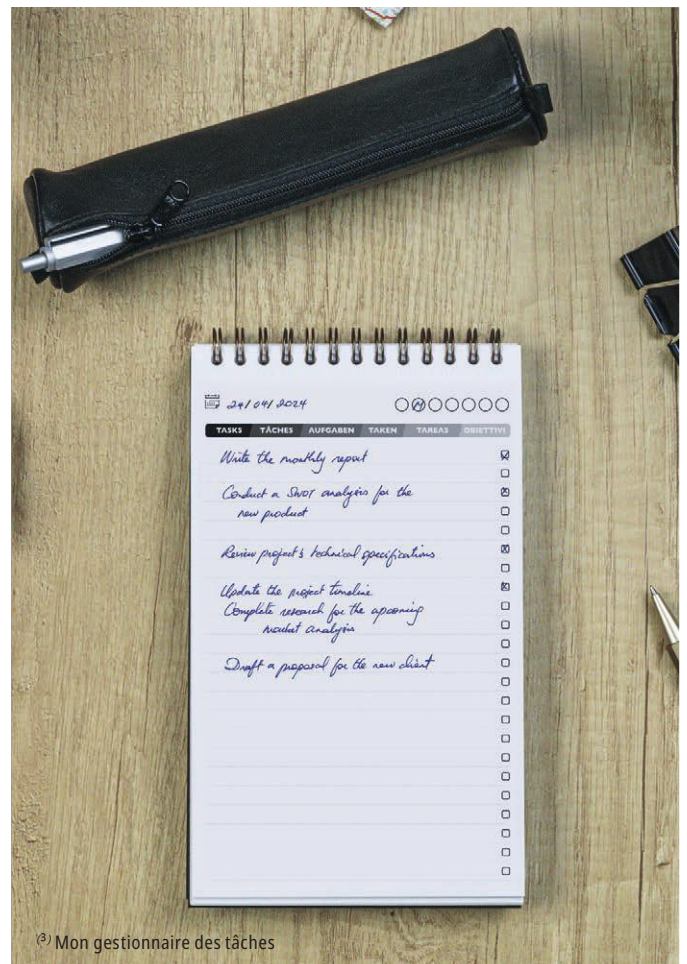 24/04/2024 M
TASKS TÂCHES AUFGABEN TAKEN TAREAS OBIETTIVI
Write the monthly report
Conduct a SWOT analysis for the
new product
Review project's technical specifications
Update the project timeline
Complete research for the upcoming
market analysis
Draft a proposal for the new client
(3) Mon gestionnaire des tâches